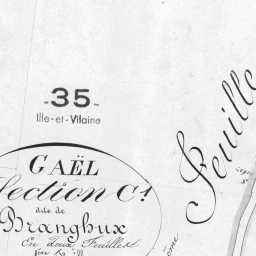 -35-
Ille-et-Vilaine
GAËL
Section C.
dite de
Branghux
En deux Feuilles
Feuille